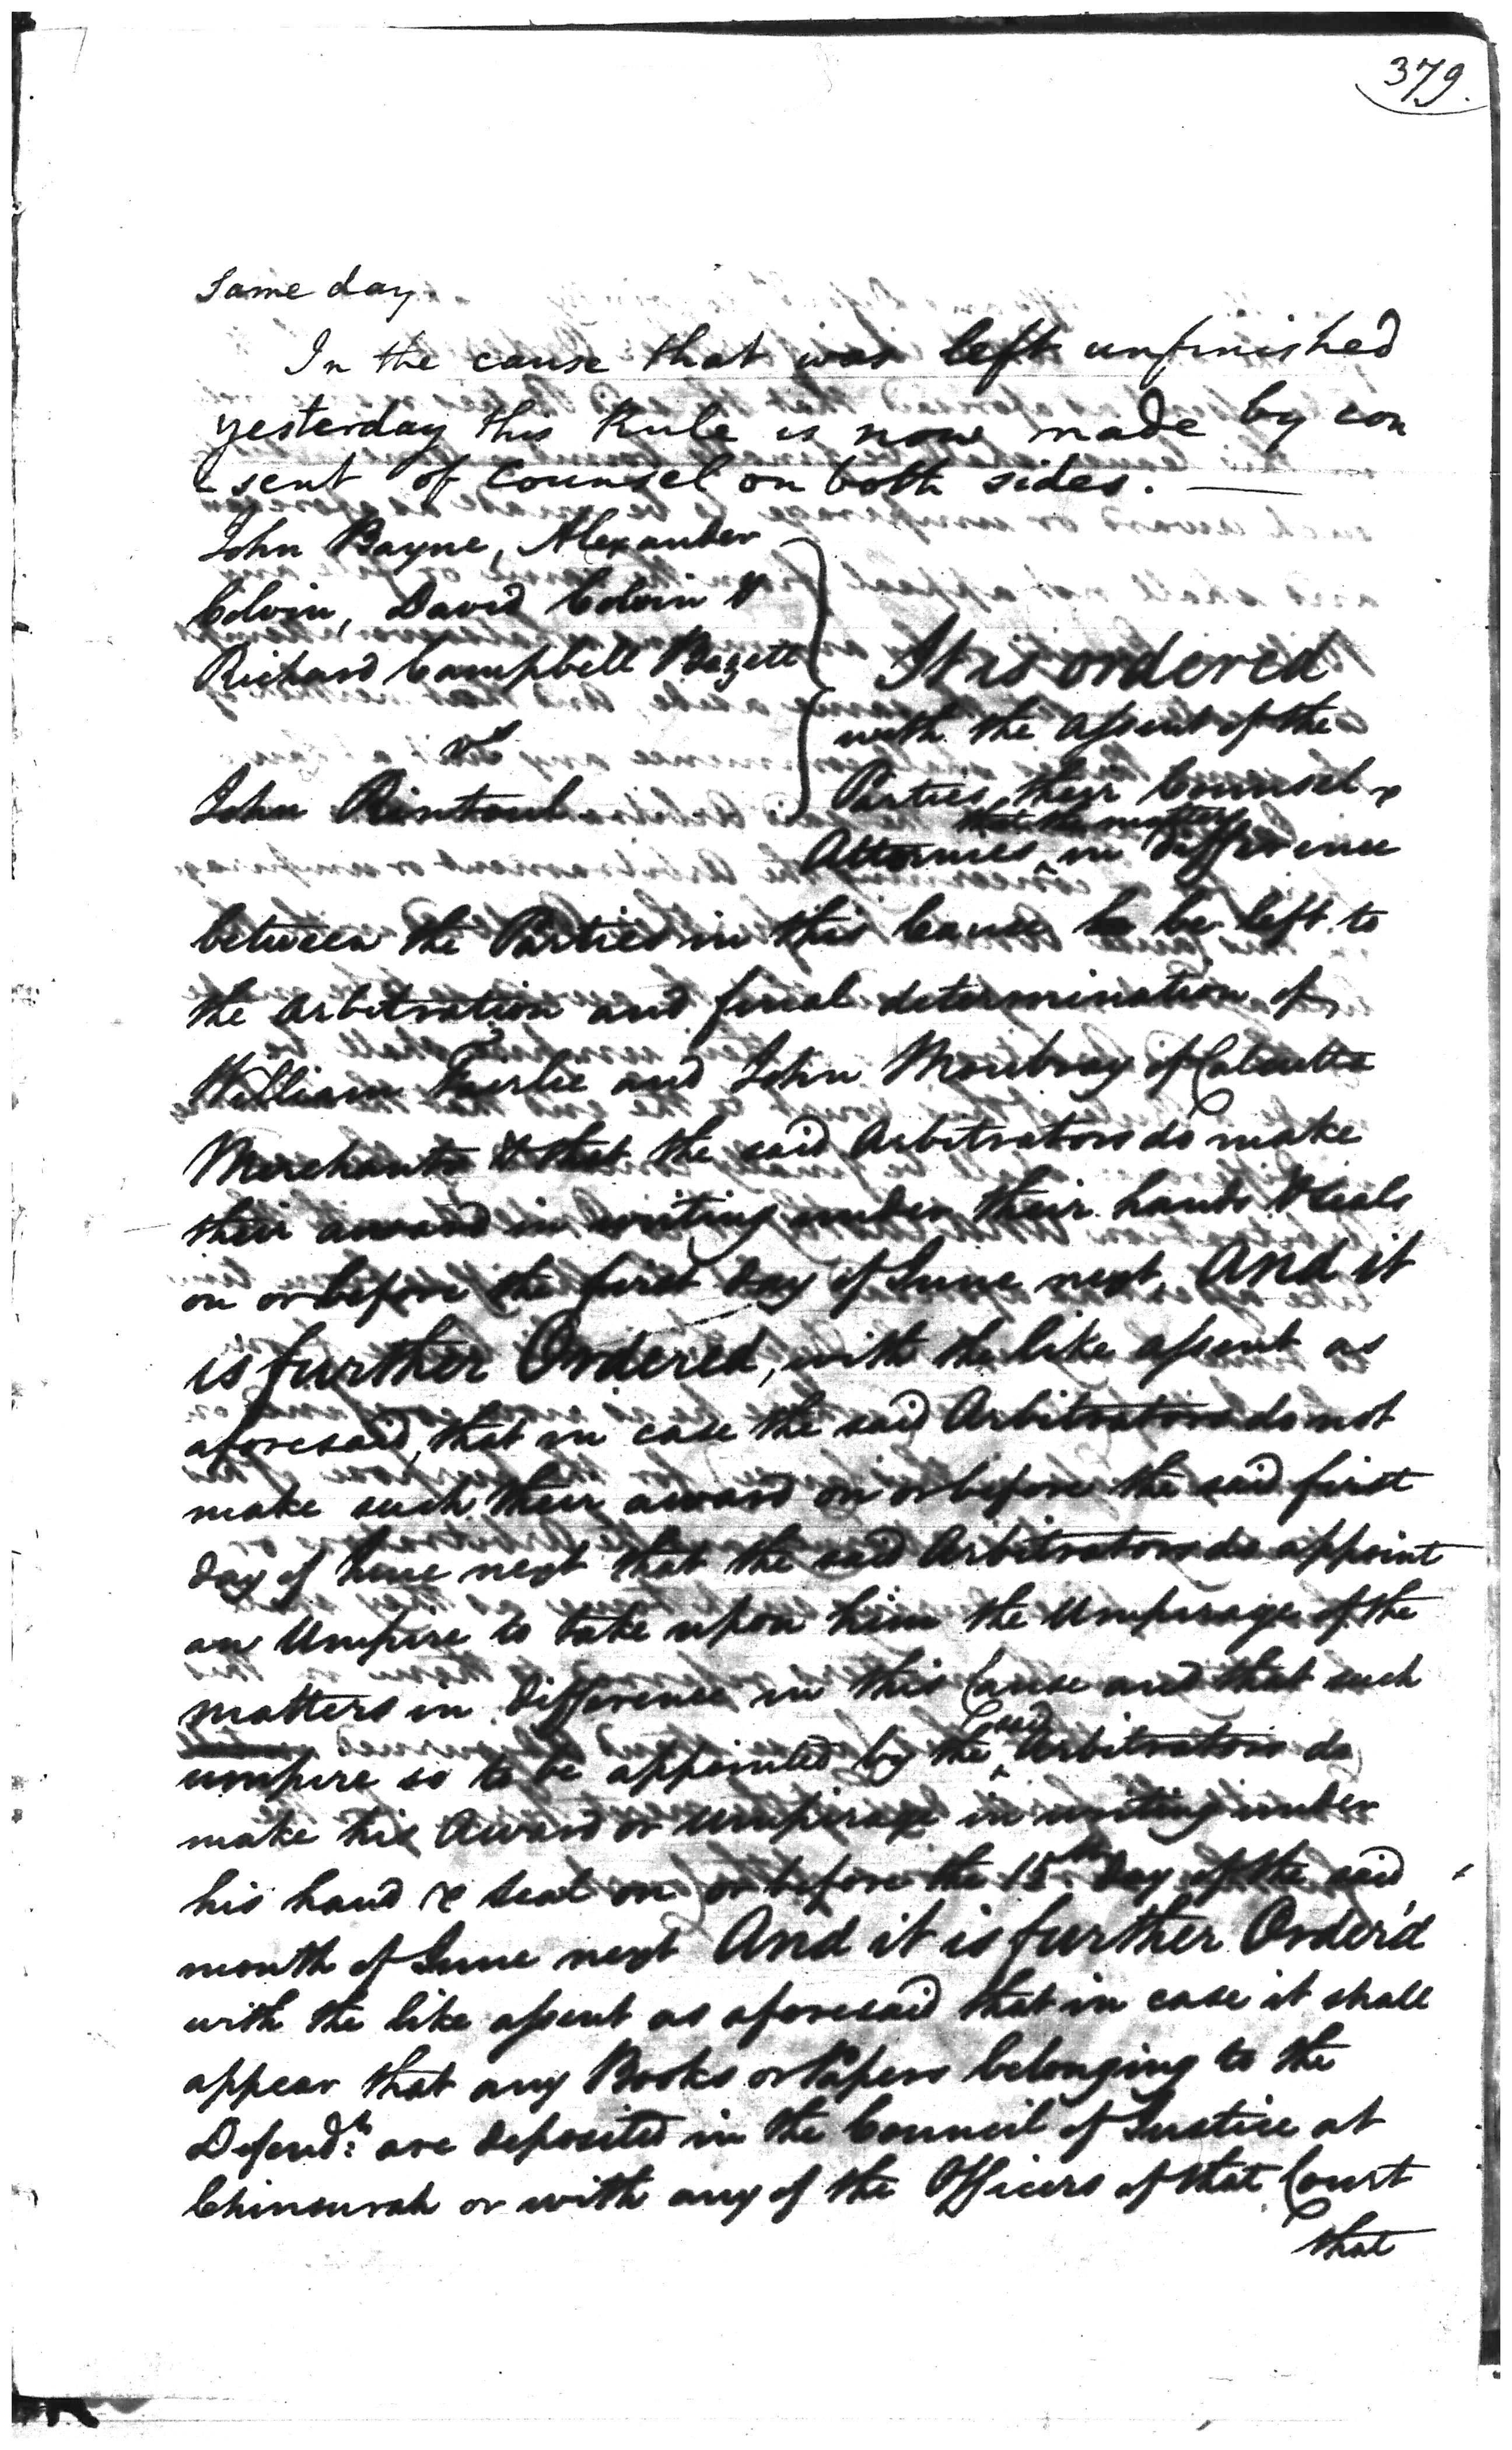 379.
Same day
In the cause that was left unfinished
yesterday this Rule is now made by con
sent of Counsel on both sides. —
John Bayne, Alexander
Colvin, David Colvin &
Richard Campbell Bazett
vs
John Rintoul
It is ordered
with the assent of the
Parties, their Counsel &
that the matters
Attornies, in difference
between the Parties in this Cause be left to
the Arbitration and final determination of
William Fairlie and John Moubray of Calcutta
Merchants & that the said Arbitrators do make
their award in writing under their hands & seals
on or before the first day of June next, And it
is further Ordered, with the like assent as
aforesaid, that in case the said Arbitrators do not
make such their award on or before the said first
day of June next that the said Arbitrators do appoint
an Umpire to take upon him the Umpirage of the
matters in difference in this Cause and that such
said
umpire so to be appointed by the Arbitrators do
make his Award or Umpirage in writing under
his hand & seal on or before the 15th day of the said
month of June next And it is further Order'd
with the like assent as aforesaid that in case it shall
appear that any Books or Papers belonging to the
Defend:t are deposited in the Council of Justice at
Chinsurah or with any of the Officers of that Court
that